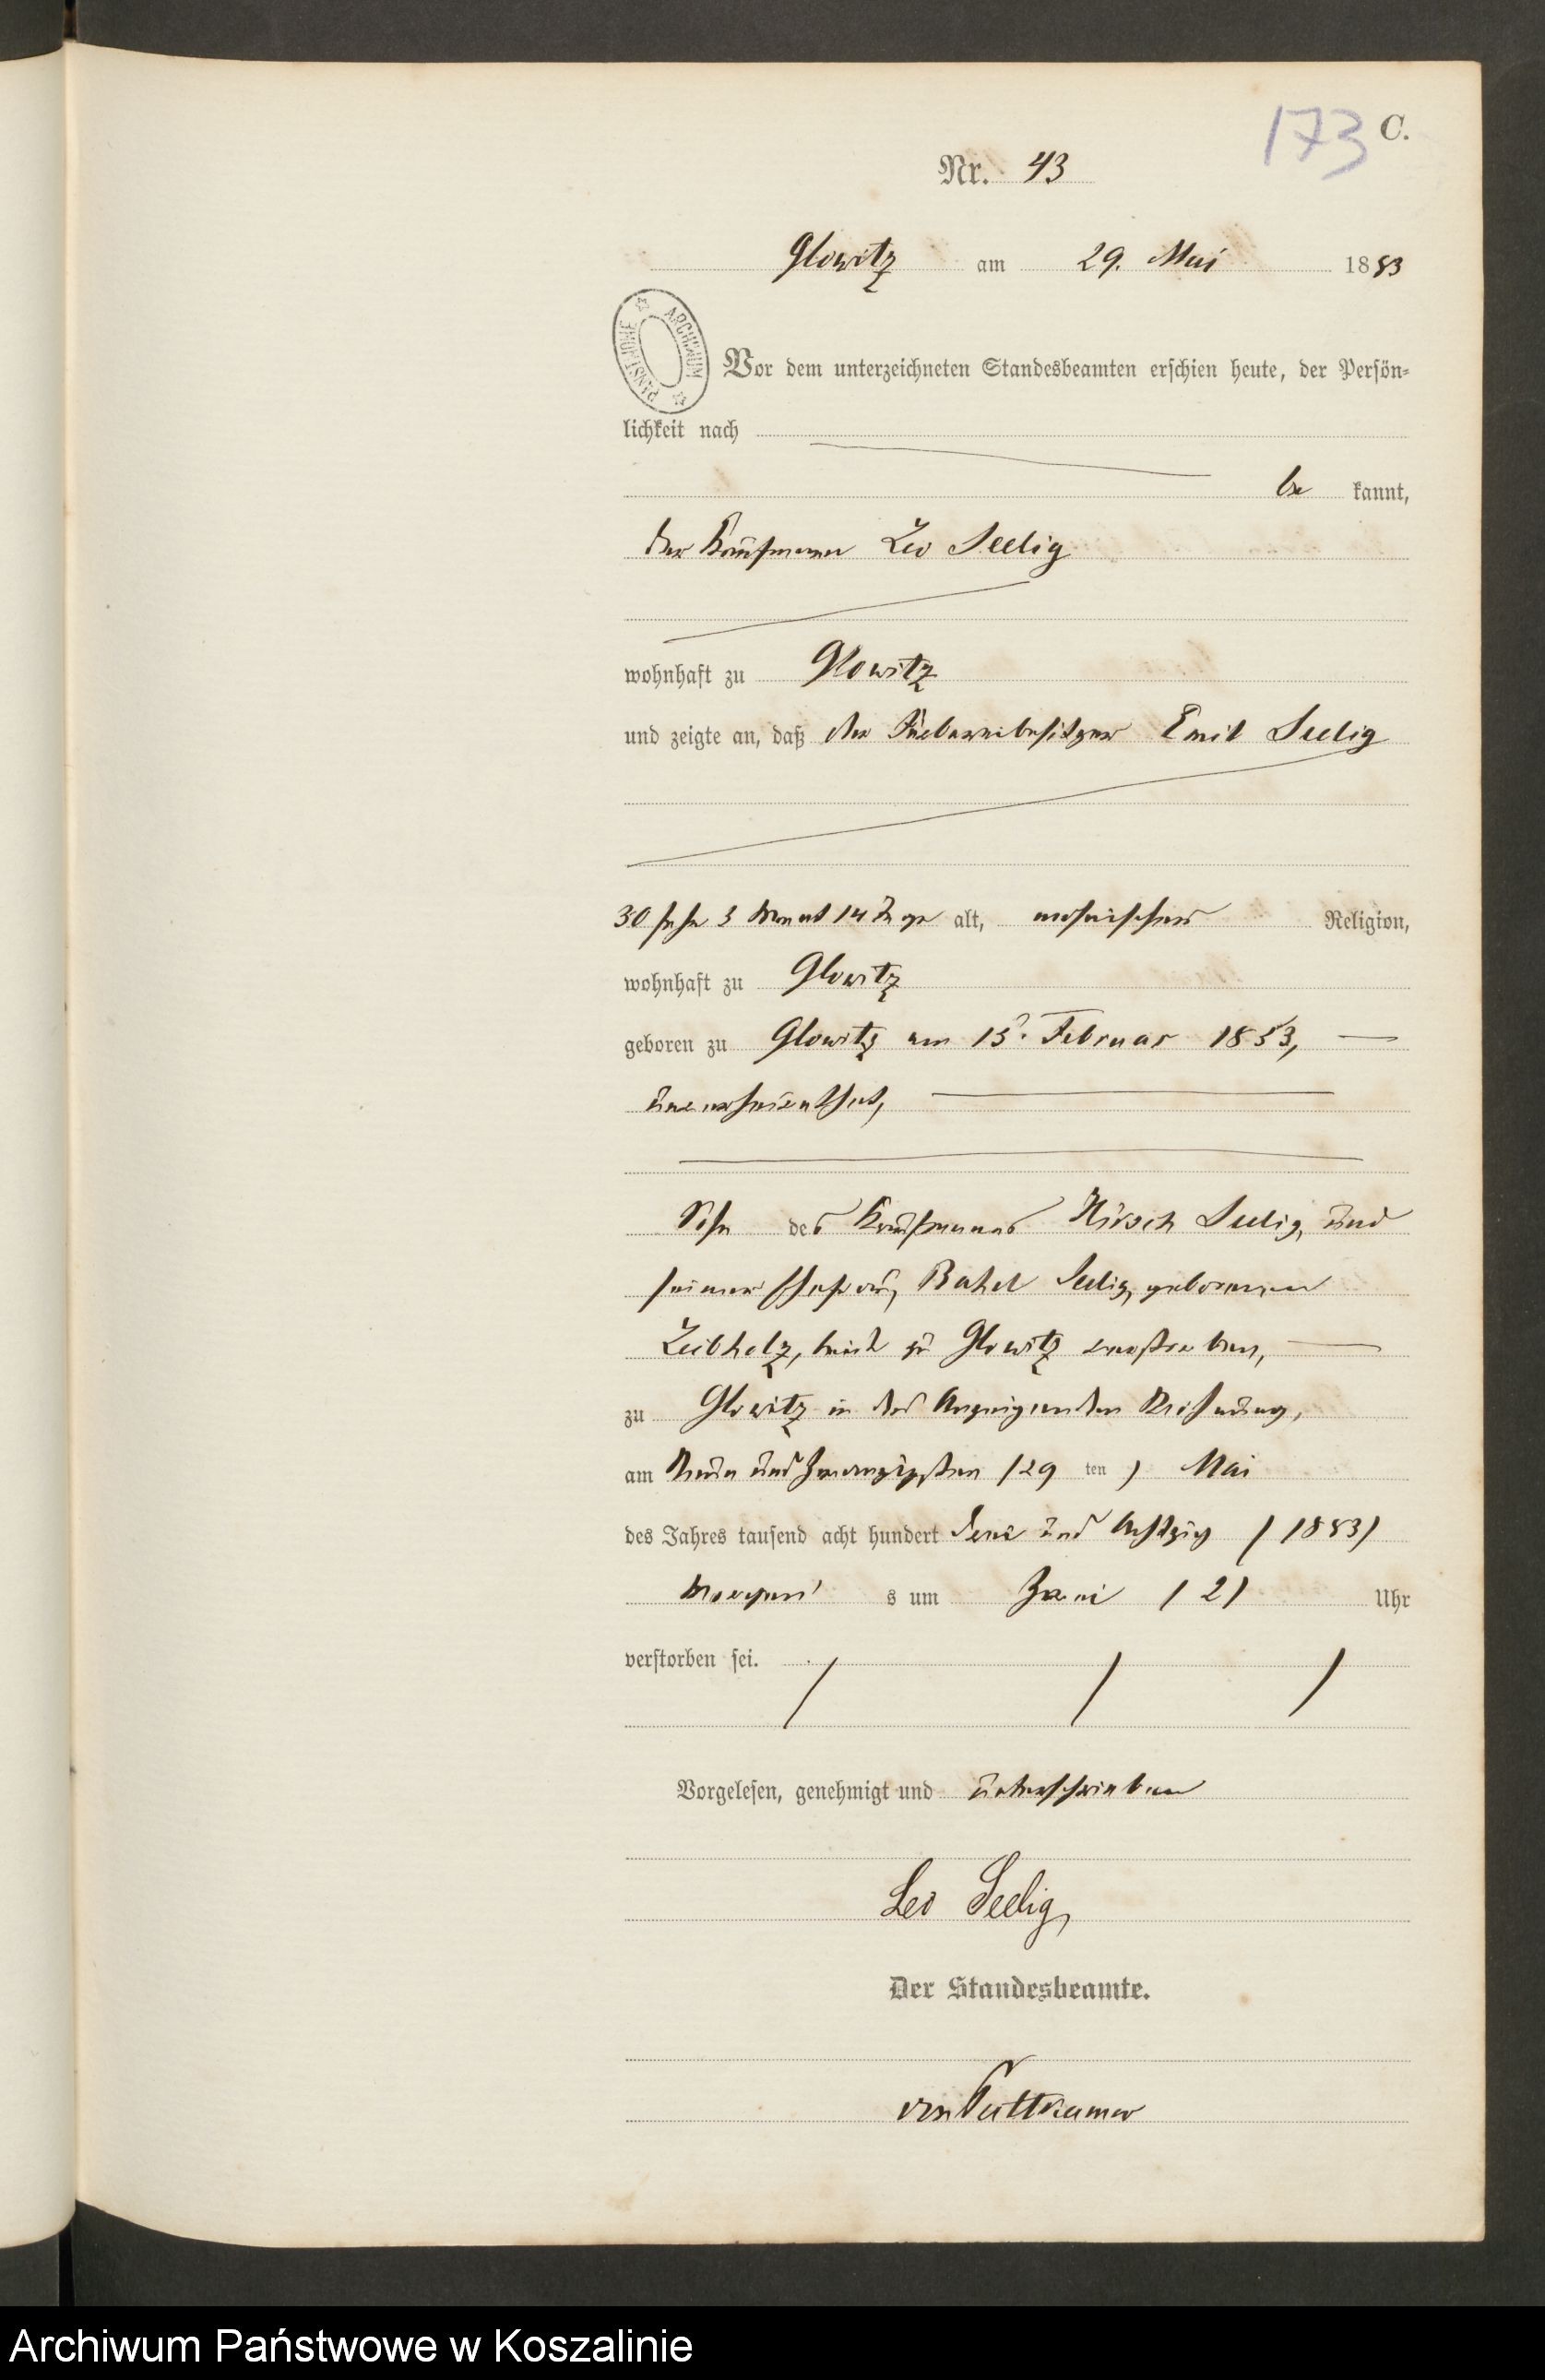 173 C.
Nr. 43
Glowitz am 29. Mai 1883
ARCHIWUM PAŃSTWOWE
Vor dem unterzeichneten Standesbeamten erschien heute, der Persön-
lichkeit nach
be kannt,
der Kaufmann Leo Seelig
wohnhaft zu Glowitz
und zeigte an, daß der Färbereibesitzer Emil Seelig
30 Jahr 3 Monat 14 Tage alt, mosaischer Religion,
wohnhaft zu Glowitz
geboren zu Glowitz am 15. Februar 1853,
unverheirathet,
Sohn des Kaufmanns Hirsch Seelig, und
seiner Ehefrau, Rahel Seelig, geborenen
Leibholz, beide zu Glowitz verstorben,
zu Glowitz in des Anzeigenden Wohnung,
am Neun und Zwanzigsten / 29 ten / Mai
des Jahres tausend acht hundert drei und Achtzig / 1883 /
Morgens s um Zwei / 2 / Uhr
verstorben sei.
Vorgelesen, genehmigt und unterschrieben
Leo Seelig
Der Standesbeamte.
von Puttkamer
Archiwum Państwowe w Koszalinie